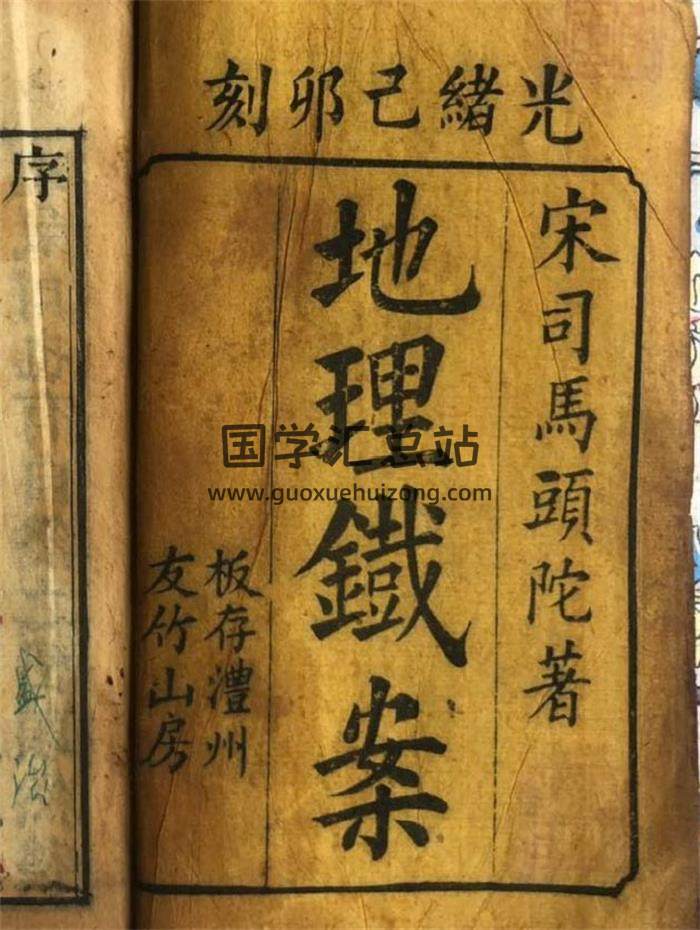 光緒己卯刻
宋司馬頭陀著
地理鐵案
板存澧州
友竹山房
序
国学汇总站
www.guoxuehuizong.com